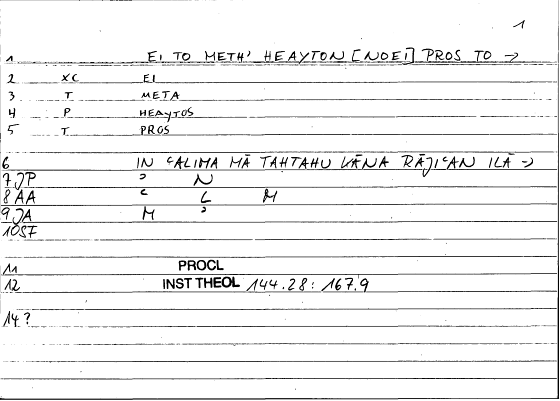 1
1 EI TO METH' HEAYTON [NOEI] PROS TO →
2 XC EI
3 T META
4 P HEAYTOS
5 T PROS
6 IN ʿALIMA MĀ TAHTAHU KĀNA RĀJIʿAN ILĀ →
7 JP ʾ N
8 AA ʿ L M
9 JA M ʾ
10 SF
11 PROCL
12 INST THEOL 144.28: 167.9
14 ?